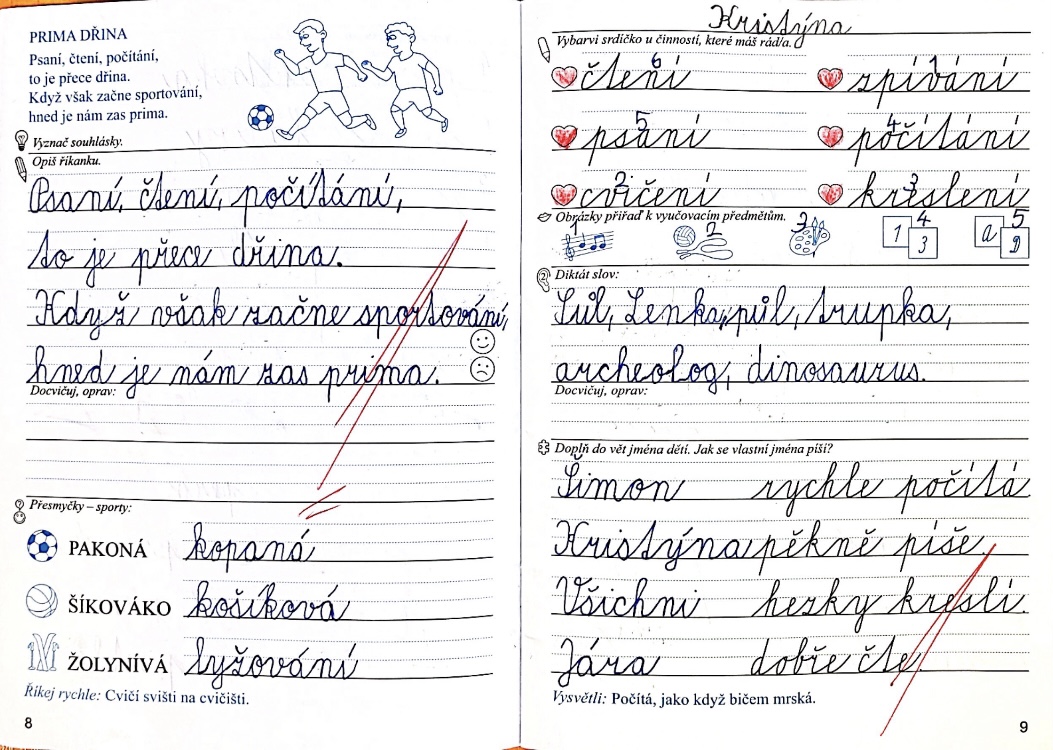 PRIMA DŘINA
Psaní, čtení, počítání,
to je přece dřina.
Když však začne sportování,
hned je nám zas prima.
Vyznač souhlásky.
Opiš říkanku.
Psaní, čtení, počítání,
to je přece dřina.
Když však začne sportování,
hned je nám zas prima.
Docvičuj, oprav:
Přesmyčky – sporty:
PAKONÁ kopaná
ŠÍKOVÁKO košíková
ŽOLYNÍVÁ lyžování
Říkej rychle: Cvičí svišti na cvičišti.
8
Kristýna
Vybarvi srdíčko u činností, které máš rád/a.
6 1
čtení zpívání
5 4
psaní počítání
2 3
cvičení kreslení
Obrázky přiřaď k vyučovacím předmětům.
1 2 3 4 5
1 3 a D
Diktát slov:
Sůl, Lenka, půl, trupka,
archeolog, dinosaurus.
Docvičuj, oprav:
Doplň do vět jména dětí. Jak se vlastní jména píší?
Šimon rychle počítá
Kristýna pěkně píše.
Všichni hezky kreslí.
Jára dobře čte
Vysvětli: Počítá, jako když bičem mrská.
9